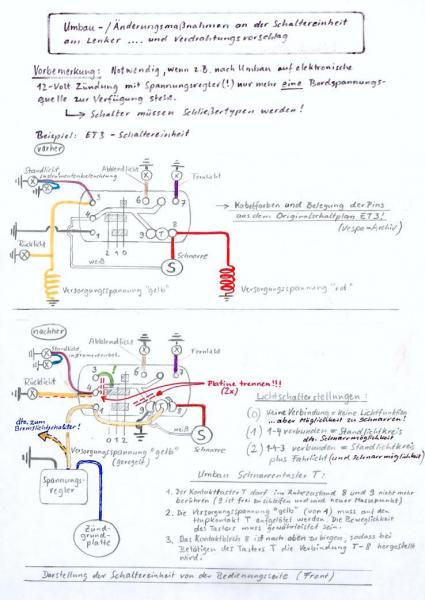 Umbau-/Änderungsmaßnahmen an der Schaltereinheit
am Lenker .... und Verdrahtungsvorschlag
Vorbemerkung: Notwendig, wenn z.B. nach Umbau auf elektronische
12-Volt Zündung mit Spannungsregler(!) nur mehr eine Bordspannungs-
quelle zur Verfügung steht.
↳ Schalter müssen Schließertypen werden!
Beispiel: ET3 - Schaltereinheit
vorher
Standlicht
Instrumentenbeleuchtung
Abblendlicht
Fernlicht
3
6
7
4
1
9
T
8
2 1 0
Rücklicht
weiß
S
Schnarre
Versorgungsspannung "gelb"
Versorgungsspannung "rot"
→ Kabelfarben und Belegung der Pins
aus dem Originalschaltplan ET3!
(Vespa-Archiv)
nachher
Standlicht
Abblendlicht
Fernlicht
3
6
7
Rücklicht
4
Platine trennen!!!
(2x)
1
9
8
0 1 2
weiß
S
Schnarre
dto. zum
Bremslichtschalter!
Versorgungsspannung "gelb"
(geregelt)
Spannungs-
regler
Zünd-
grund-
platte
Lichtschalterstellungen:
(0) keine Verbindung = keine Lichtfunktion
... aber Möglichkeit zu Schnarren!
(1) 1-4 verbunden = Standlichtkreis
dto. Schnarrmöglichkeit
(2) 1-4-3 verbunden = Standlichtkreis
plus Fahrlicht (und Schnarrmöglichkeit)
Umbau Schnarrentaster T:
1. Der Kontakttaster T darf im Ruhezustand 8 und 9 nicht mehr
berühren (9 ist frei und neuer Massepunkt)
2. Die Versorgungsspannung "gelb" (von 4) muss auf den
Hupkontakt T aufgelötet werden. Die Beweglichkeit
des Tasters muss gewährleistet sein.
3. Das Kontaktblech 8 ist nach oben zu biegen, sodass bei
Betätigen des Tasters T die Verbindung T-8 hergestellt
wird.
Darstellung der Schaltereinheit von der Bedienungsseite (Front)